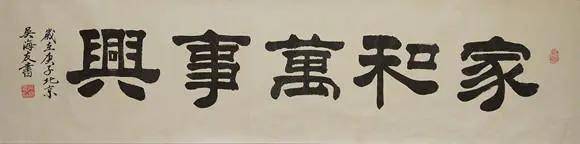 家和萬事興
歲在庚子北京
吳海友書